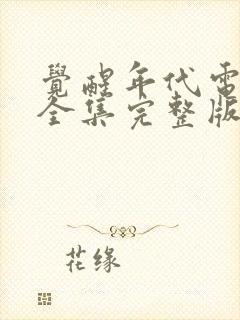 覺醒年代電
全集完整版
花缘